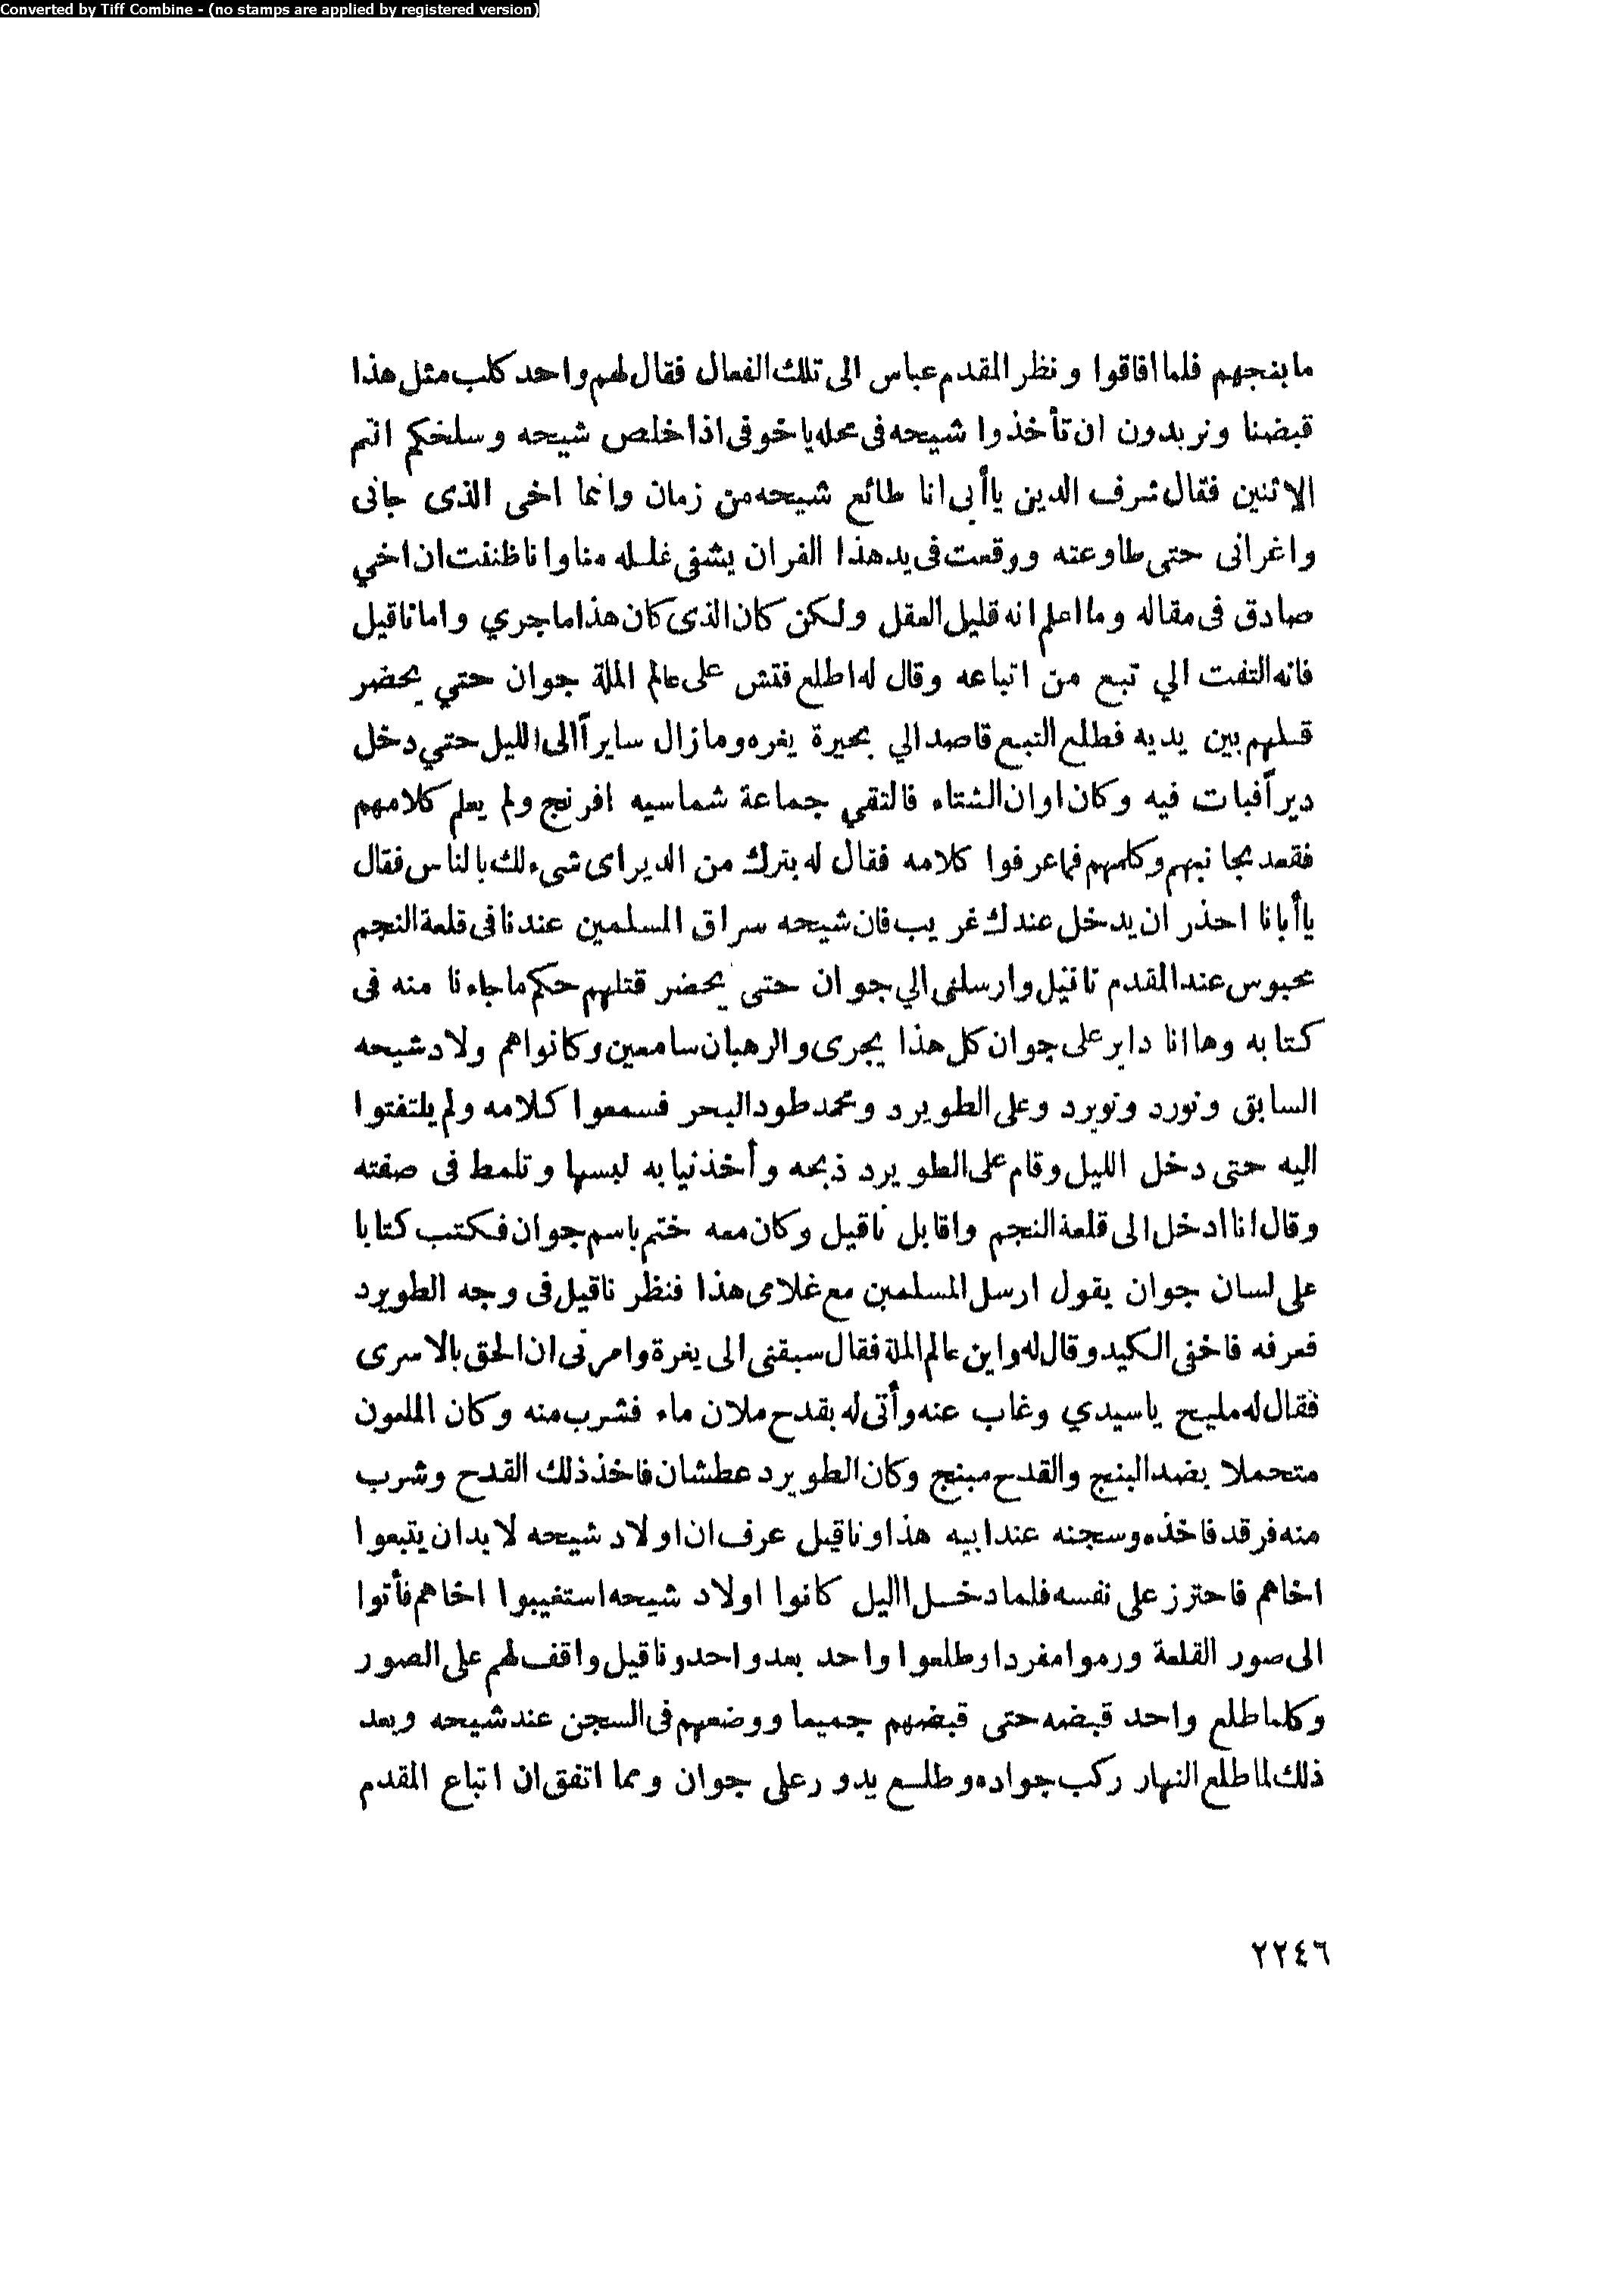 Converted by Tiff Combine - (no stamps are applied by registered version)
ما بنجهم فلما افاقوا ونظر المقدم عباس الى تلك الفعال فقال لهم واحد كلب مثل هذا
قبضنا ونريدون ان تأخذوا شيحه فى محله ياخوفى اذا خلص شيحه وسلخكم انتم
الاثنين فقال شرف الدين ياأبى انا طائع شيحه من زمان وانما اخى الذى جانى
واغرانى حتى طاوعته ووقعت فى يد هذا القران يشفى غلله منا وانا ظننت ان اخي
صادق فى مقاله وما اعلم انه قليل العقل ولكن كان الذى كان هذا ما جري واما ناقيل
فانه التفت الي تبع من اتباعه وقال له اطلع فتش على عالم الملة جوان حتي يحضر
قتلهم بين يديه فطلع التبع قاصد الي بحيرة يغره وما زال سايراً الى الليل حتي دخل
ديراً فبات فيه وكان اوان الشتاء فالتقي جماعة شماسيه افرنج ولم يعلم كلامهم
فقعد بجانبهم وكلمهم فما عرفوا كلامه فقال له بترك من الدير اى شىء لك بالناس فقال
ياأبانا احذر ان يدخل عندك غريب فان شيحه سراق المسلمين عندنا فى قلعة النجم
محبوس عند المقدم ناقيل وارسلنى الي جوان حتى يحضر قتلهم حكم ما جاءنا منه فى
كتابه وها انا داير على جوان كل هذا يجرى والرهبان سامعين وكانوا هم ولاد شيحه
السابق ونورد ونويرد وعلى الطويرد ومحمد طود البحر فسمعوا كلامه ولم يلتفتوا
اليه حتى دخل الليل وقام على الطويرد ذبحه وأخذ نيابه لبسها وتلمط فى صفته
وقال انا ادخل الى قلعة النجم واقابل ناقيل وكان معه ختم باسم جوان فكتب كتابا
على لسان جوان يقول ارسل المسلمين مع غلامى هذا فنظر ناقيل فى وجه الطويرد
فعرفه فاخفى الكيد وقال له واين عالم الملة فقال سبقنى الى يغرة وامرنى ان الحق بالاسرى
فقال له مليح ياسيدي وغاب عنه وأتى له بقدح ملان ماء فشرب منه وكان الملعون
متحملا بضد البنج والقدح مبنج وكان الطويرد عطشان فاخذ ذلك القدح وشرب
منه فرقد فاخذه وسجنه عند ابيه هذا وناقيل عرف ان اولاد شيحه لابد ان يتبعوا
اخاهم فاحترز على نفسه فلما دخل االيل كانوا اولاد شيحه استغيبوا اخاهم فأتوا
الى صور القلعة ورموا مفردا وطلعوا واحد بعد واحد وناقيل واقف لهم على الصور
وكلما طلع واحد قبضه حتى قبضهم جميعا ووضعهم فى السجن عند شيحه وبعد
ذلك لما طلع النهار ركب جواده وطلع يدور على جوان ومما اتفق ان اتباع المقدم
٢٢٤٦